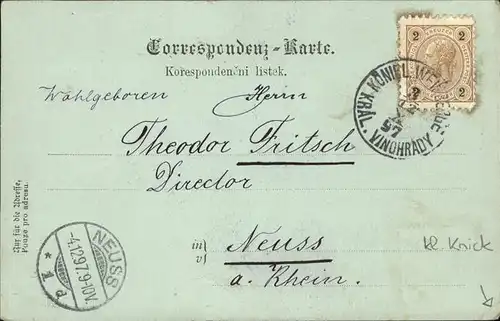 Correspondenz-Karte.
Korespondenční lístek.
Wohlgeboren Herrn
Theodor Fritsch
Director
in
v
Neuss
a. Rhein.
Nur für die Adresse.
Pouze pro adresu.
2 2
2 2
KRÁL. VINOHRADY
97
NEUSS
-4.12.97.9-10V.
* 1 d
kl. Knick